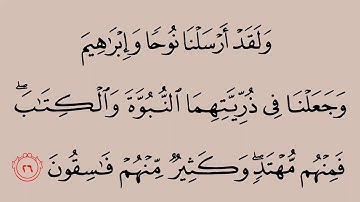 وَلَقَدْ أَرْسَلْنَا نُوحًا وَإِبْرَٰهِيمَ
وَجَعَلْنَا فِى ذُرِّيَّتِهِمَا ٱلنُّبُوَّةَ وَٱلْكِتَٰبَ ۖ
فَمِنْهُم مُّهْتَدٍ ۖ وَكَثِيرٌ مِّنْهُمْ فَٰسِقُونَ ٢٦